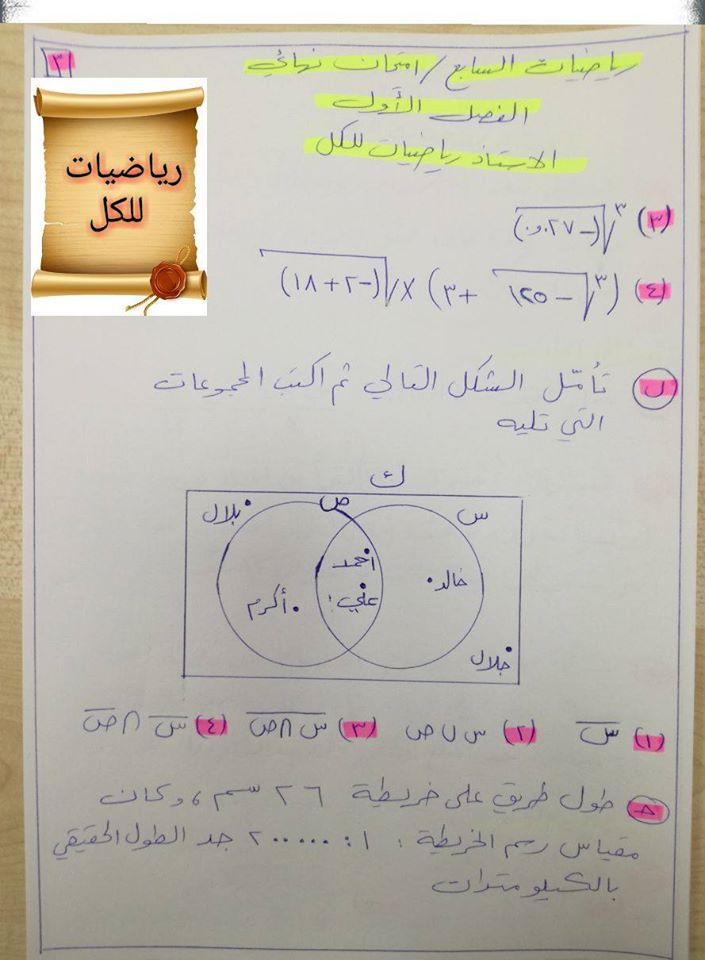 [٣]
رياضيات السابع / امتحان نهائي
الفصل الأول
الاستاذ رياضيات للكل
رياضيات
للكل
(٣) ∛(-٠,٠٢٧)
(٤) (∛-١٢٥ + ٣) × √(-٢ + ١٨)
ب) تأمّل الشكل التالي ثم اكتب المجموعات
التي تليه
ك
س
ص
بلال
احمد
علي
خالد
أكرم
جلال
(١) س̅ (٢) س ∪ ص (٣) س ∩ ص̅ (٤) س̅ ∩ ص̅
ج) طول طريق على خريطة ٢٦ سم، وكان
مقياس رسم الخريطة: ١ : ٢٠٠٠٠٠ جد الطول الحقيقي
بالكيلو مترات